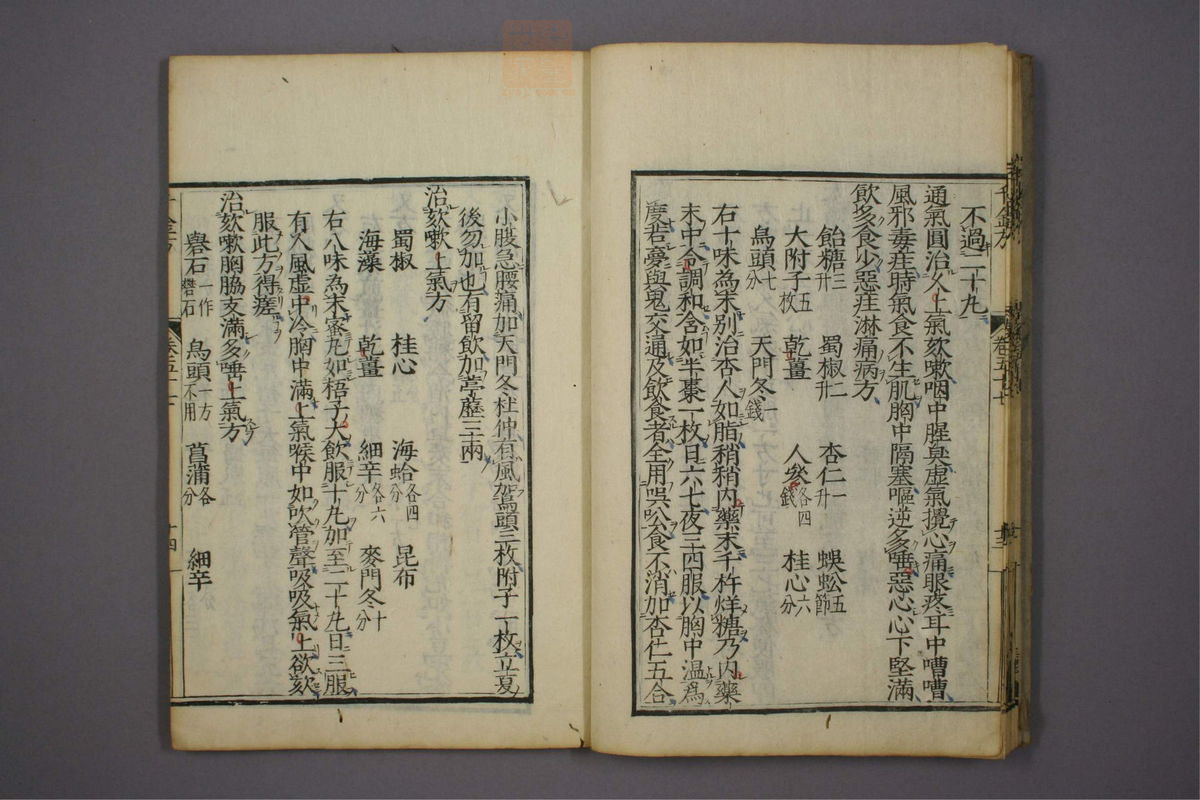 不過二十九
通氣圓治人上氣欬嗽咽中腥臭虛氣攪心痛眼疼耳中嘈嘈
風邪毒疰時氣食不生肌胸中隔塞嘔逆多唾惡心心下堅滿
飲多食少惡疰淋痛病方
飴糖三升 蜀椒二升 杏仁一升 蜈蚣五節
大附子五枚 乾薑 人參各四錢 桂心六分
烏頭七分 天門冬一錢
右十味為末別治杏人如脂稍稍內藥末千杵烊糖乃內藥
末中令調和含如半棗一枚日六七夜三四服以胸中温為
度若憂與鬼交通及飲食者全用吳公食不消加杏仁五合
小腹急腰痛加天門冬杜仲有風加烏頭三枚附子一枚立夏
後勿加也有留飲加葶藶三兩
治欬嗽上氣方
蜀椒 桂心 海蛤各四分 昆布
海藻 乾薑 細辛各六分 麥門冬十分
右八味為末蜜丸如梧子大飲服十丸加至二十丸日三服
有人風虛中冷胸中滿上氣喉中如吹管聲吸吸氣上欲欬
服此方得瘥
治欬嗽胸脇支滿多唾上氣方
礜石一作礬石 烏頭一方不用 菖蒲各分 細辛
千金方
卷五十七
十四